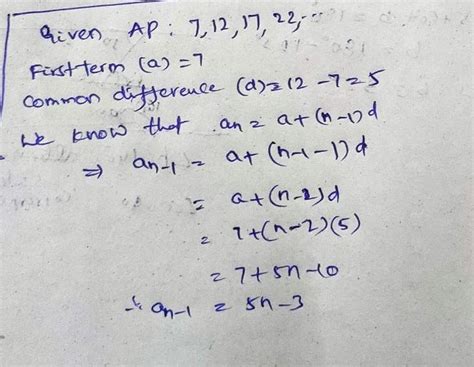 Given AP : 7,12,17,22,...
First term (a) = 7
Common difference (d) = 12 - 7 = 5
We know that an = a + (n-1)d
⇒ an-1 = a + (n-1-1)d
= a + (n-2)d
= 7 + (n-2)(5)
= 7 + 5n - 10
∴ an-1 = 5n - 3